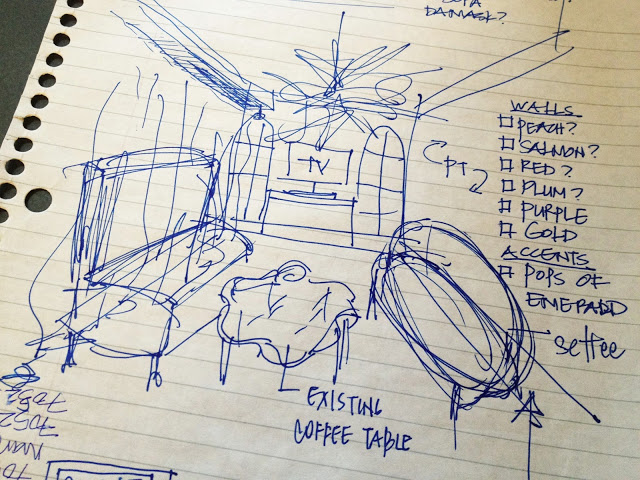 DAMASK?
WALLS
PEACH?
SALMON?
RED?
PLUM?
PURPLE
GOLD
ACCENTS
POPS OF
EMERALD
TV
PT
settee
EXISTING
COFFEE TABLE
7052
7052